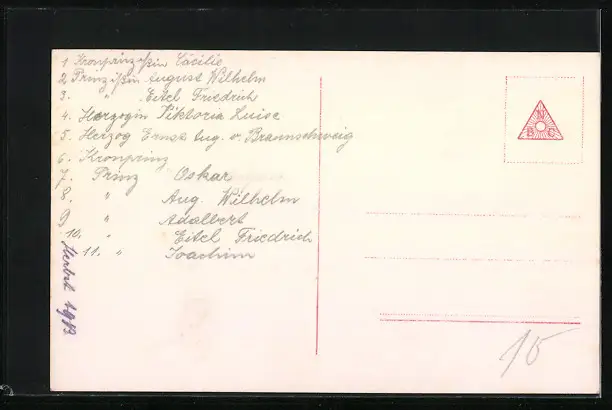 1 Kronprinzeßin Cäcilie
2 Prinzißin August Wilhelm
3. " Eitel Friedrich
4. Herzogin Viktoria Luise
5. Herzog Ernst Aug. v. Braunschweig
6. Kronprinz
7. Prinz Oskar
8. " Aug. Wilhelm
9 " Adalbert
10. " Eitel Friedrich
11. " Joachim
Herbst 1913
N
B C
15